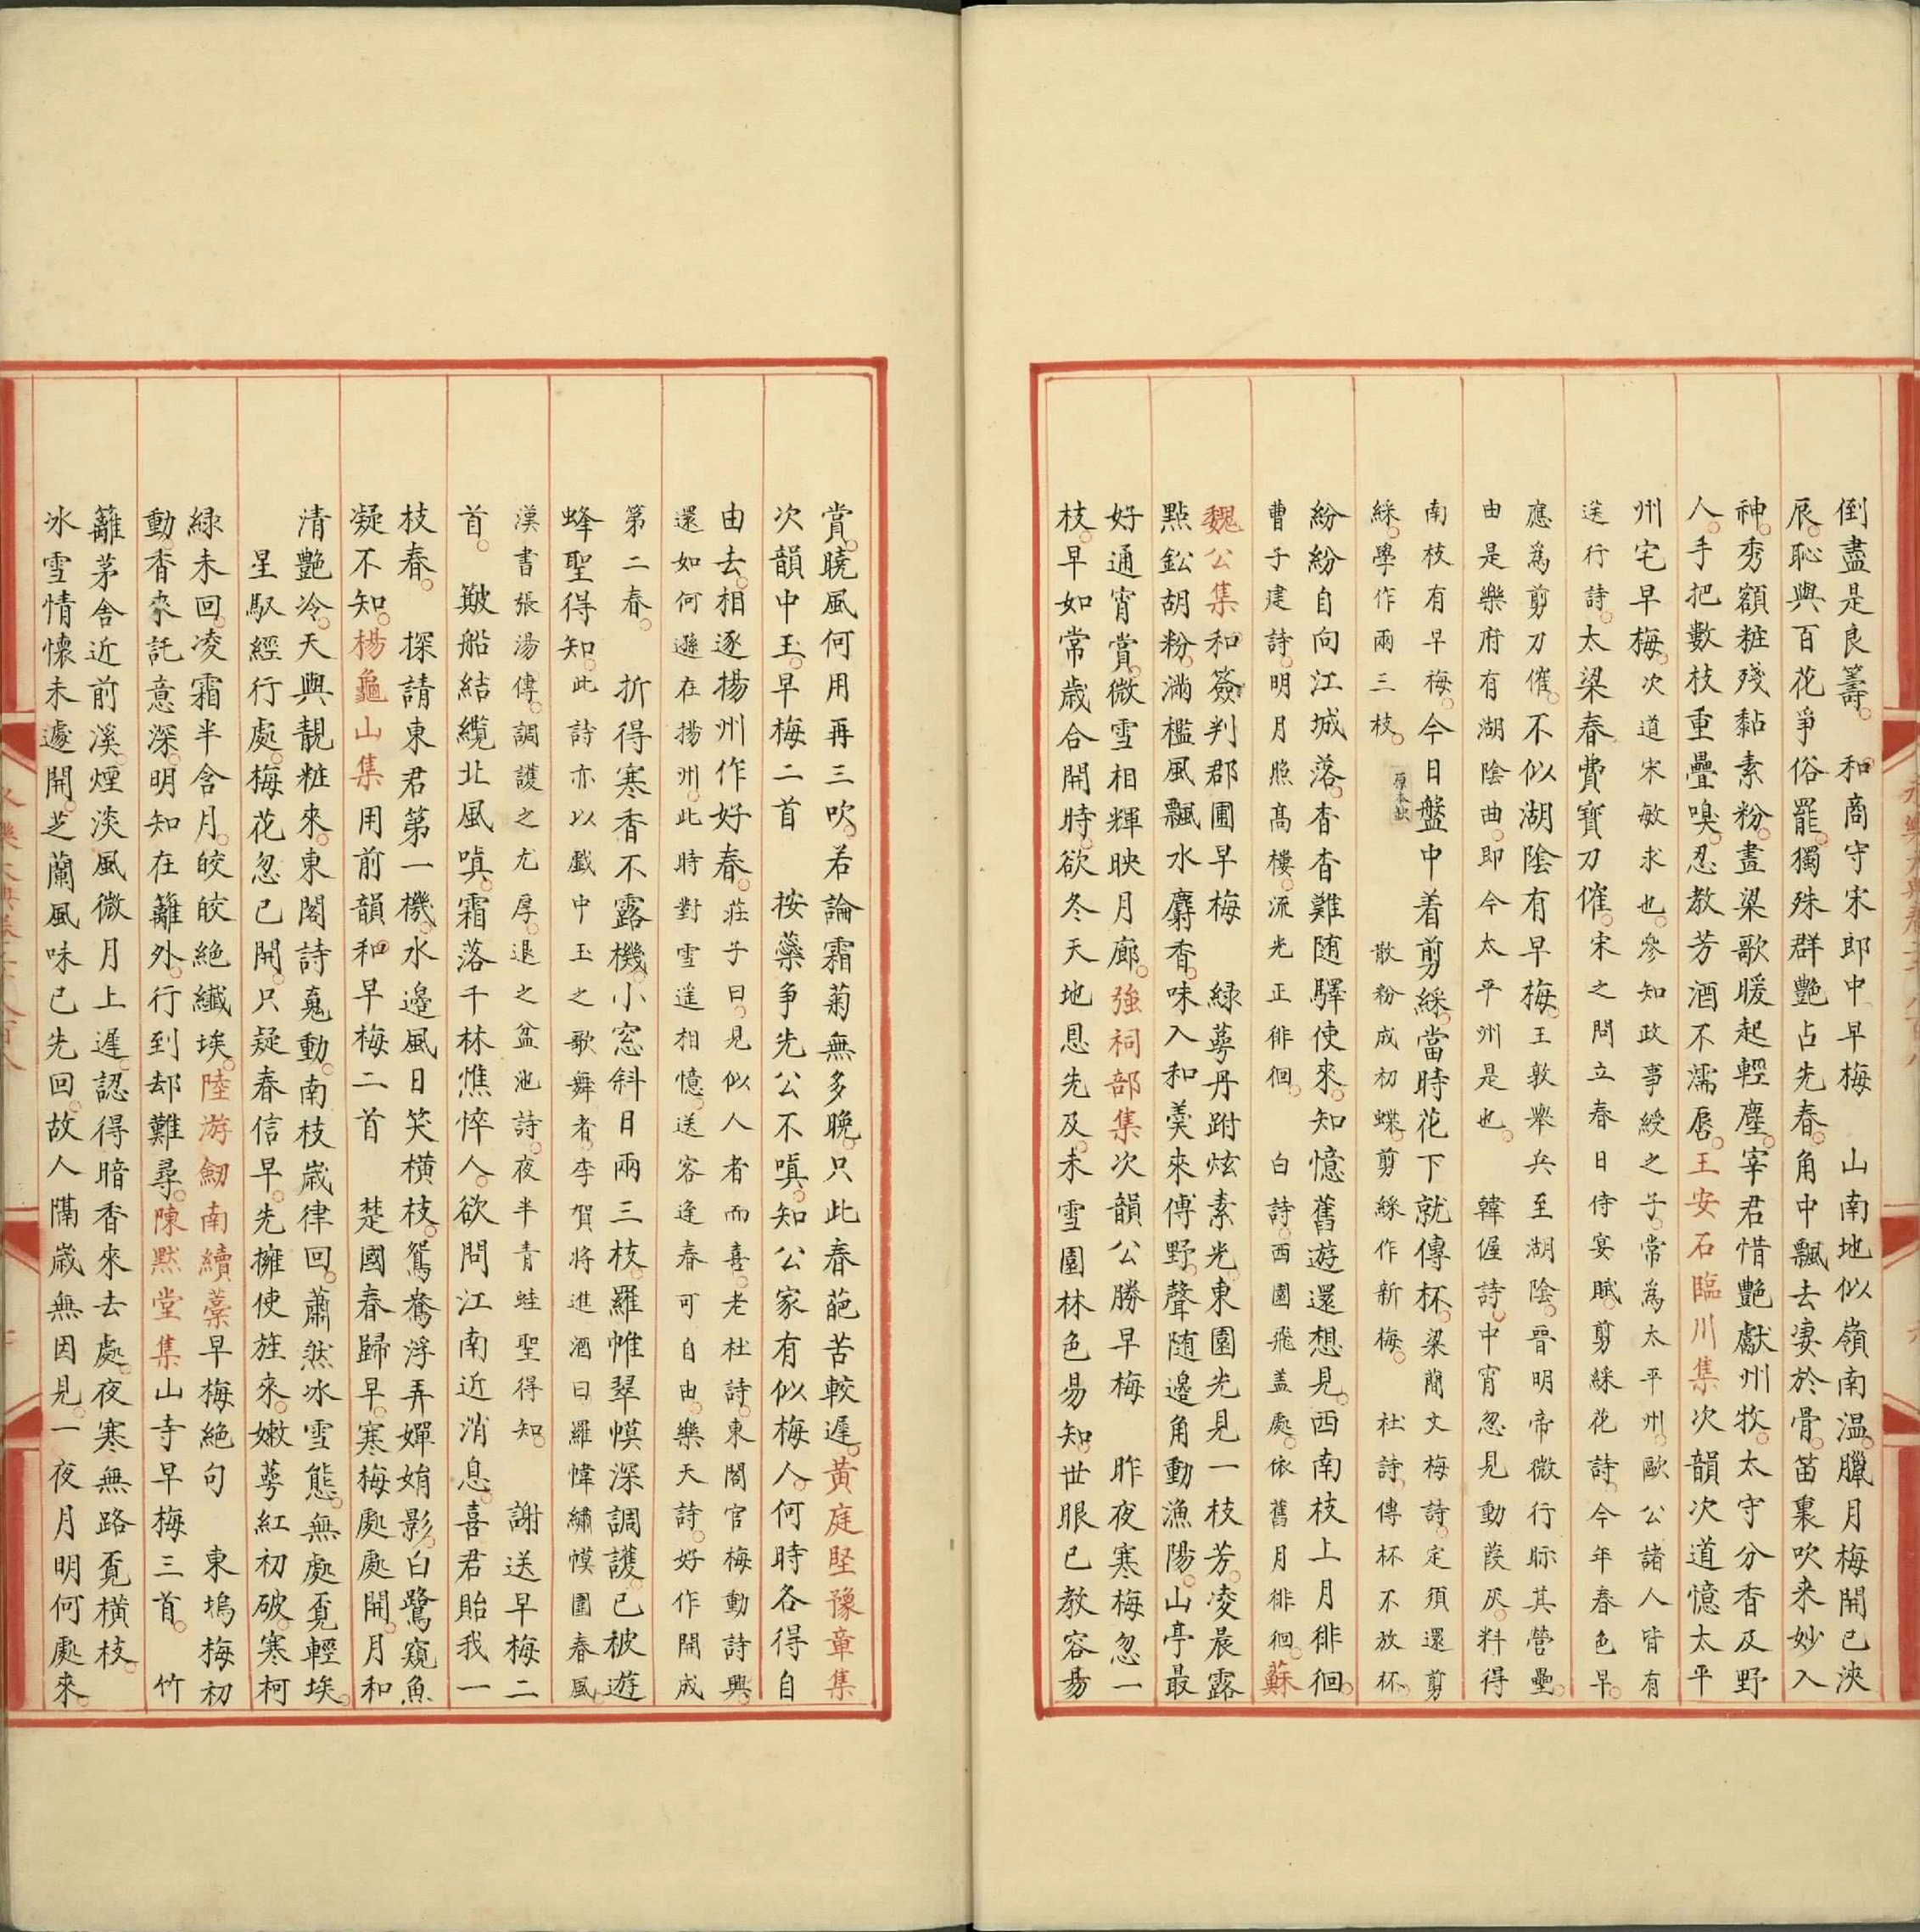 倒盡是良籌。　和商守宋郎中早梅　山南地似嶺南温。臘月梅開已浹
辰。恥與百花爭俗罷。獨殊群艷占先春。角中飄去凄於骨。笛裏吹来妙入
神。秀額粧殘黏素粉。畫梁歌暖起輕塵。宰君惜艷獻州牧。太守分香及野
人。手把數枝重疊嗅。忍教芳酒不濡唇。王安石臨川集次韻次道憶太平
州宅早梅。次道宋敏求也。參知政事綬之子。常為太平州。歐公諸人皆有
送行詩。太梁春費寶刀催。宋之問立春日侍宴賦。剪綵花詩。今年春色早。
應爲剪刀催。不似湖陰有早梅。王敦舉兵至湖陰。晉明帝微行眎其營壘。
由是樂府有湖陰曲。即今太平州是也。　韓偓詩。中宵忽見動葭灰。料得
南枝有早梅。今日盤中着剪綵。當時花下就傳杯。梁簡文梅詩。定須還剪
綵。學作兩三枝。原本缺　散粉成初蝶。剪綵作新梅。　杜詩。傳杯不放杯。
紛紛自向江城落。杳杳難随驛使來。知憶舊遊還想見。西南枝上月徘徊。
曹子建詩。明月照髙樓。流光正徘徊。　白詩。西園飛盖處。依舊月徘徊。蘇
魏公集和簽判郡圃早梅　緑萼丹跗炫素光。東園先見一枝芳。凌晨露
點鈆胡粉。滿檻風飄水麝香。味入和羮來傅野。聲随邊角動漁陽。山亭最
好通宵賞。微雪相輝映月廊。強祠部集次韻公勝早梅　昨夜寒梅忽一
枝。早如常歳合開時。欲冬天地恩先及。未雪園林色易知。世眼已教容易
賞。曉風何用再三吹。若論霜菊無多晚。只此春葩苦較遲。黃庭堅豫章集
次韻中玉。早梅二首　按藥爭先公不嗔。知公家有似梅人。何時各得自
由去。相逐揚州作好春。莊子曰。見似人者而喜。老杜詩。東閣官梅動詩興。
還如何遜在揚州。此時對雪遥相憶。送客逢春可自由。樂天詩。好作開成
第二春。　折得寒香不露機。小窓斜日兩三枝。羅帷翠幙深調護。已被遊
蜂聖得知。此詩亦以戲中玉之歌舞者。李賀將進酒曰。羅幃繡幙圍春風。
漢書張湯傳。調護之尤厚。退之盆池詩。夜半青蛙聖得知。　謝送早梅二
首。　皽船結纜北風嗔。霜落千林憔悴人。欲問江南近消息。喜君貽我一
枝春。　探請東君第一機。水邊風日笑横枝。鴛鴦浮弄嬋娟影。白鷺窺魚
凝不知。楊龜山集用前韻和早梅二首　楚國春歸早。寒梅處處開。月和
清艷冷。天與靚粧來。東閣詩䰟動。南枝歳律回。蕭然冰雪態。無處覔輕埃。
星馭經行處。梅花忽已開。只疑春信早。先擁使旌來。嫩萼紅初破。寒柯
緑未回。凌霜半含月。皎皎絶纖埃。陸游劒南續藁早梅絶句　東塢梅初
動香來。託意深。明知在籬外。行到却難尋。陳黙堂集山寺早梅三首。　竹
籬茅舍近前溪。煙淡風微月上遲。認得暗香來去處。夜寒無路覔横枝。
冰雪情懷未遽開。芝蘭風味已先回。故人隔歳無因見。一夜月明何處來。